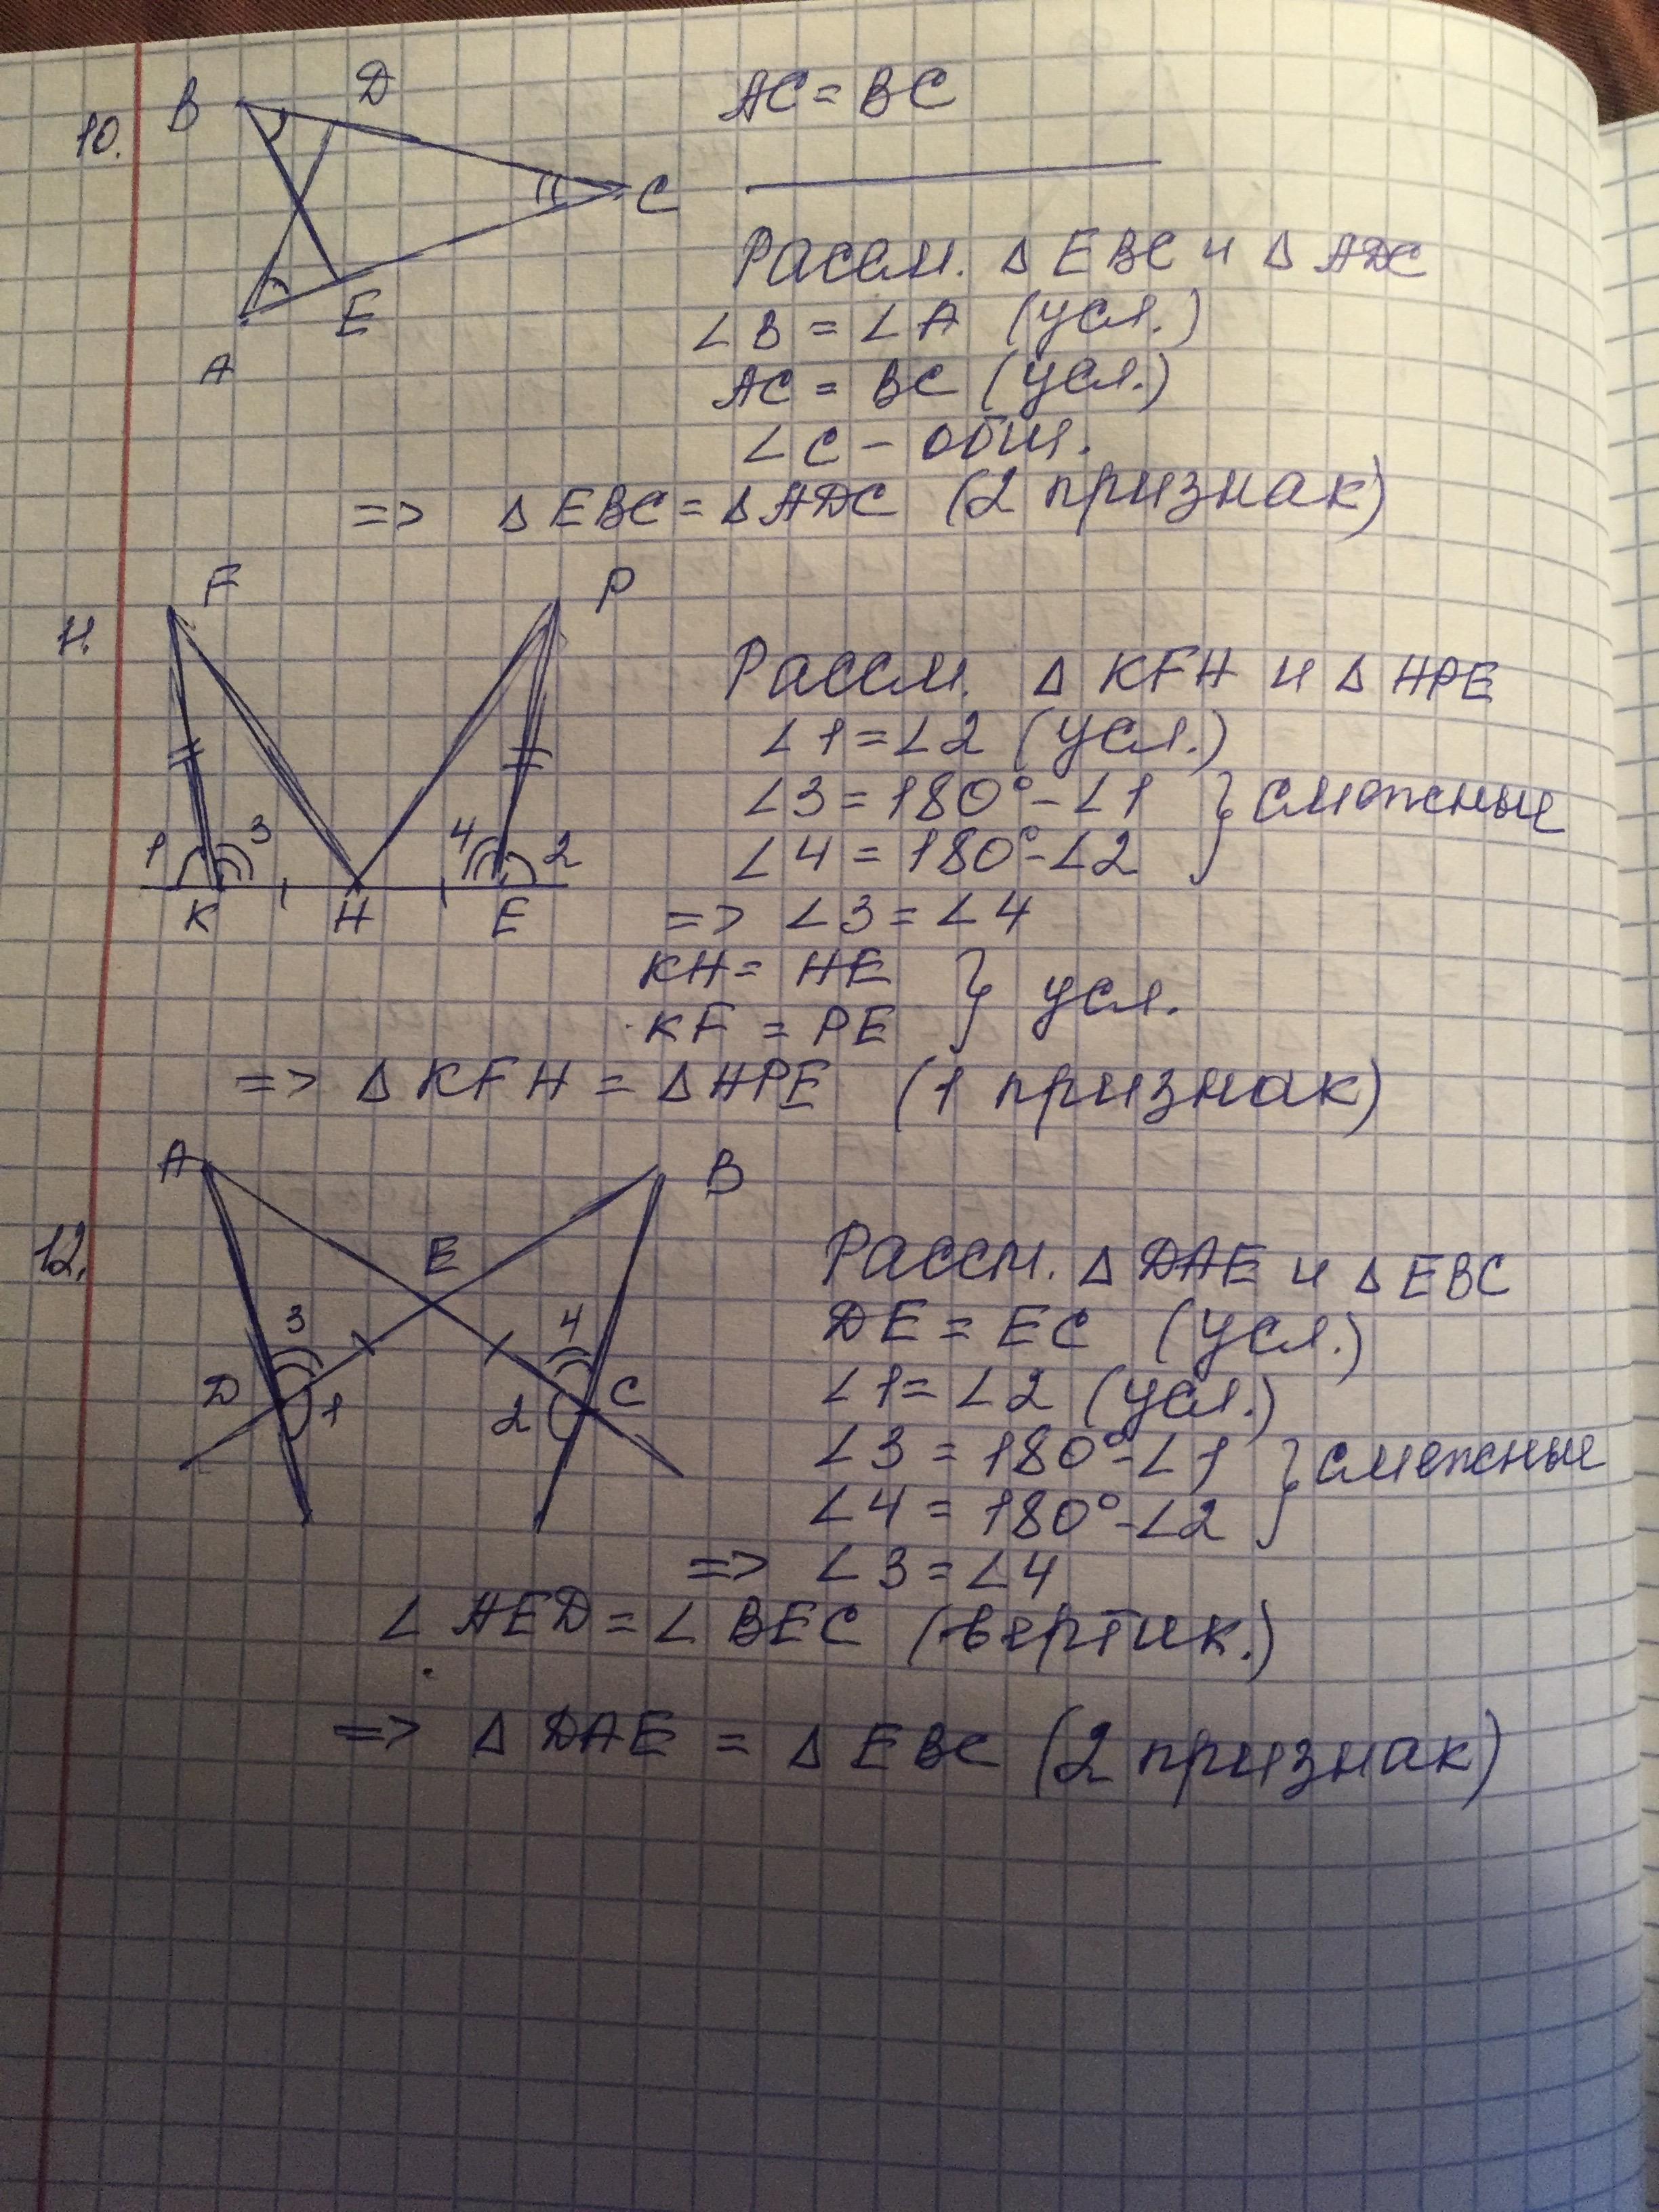 10.
B
D
C
E
A
AC = BC
Рассм. Δ EBC и Δ ADC
∠B = ∠A (усл.)
AC = BC (усл.)
∠C – общ.
=> Δ EBC = Δ ADC (2 признак)
11.
F
P
1
3
4
2
K
H
E
Рассм. Δ KFH и Δ HPE
∠1 = ∠2 (усл.)
∠3 = 180° – ∠1 } смежные
∠4 = 180° – ∠2
=> ∠3 = ∠4
KH = HE } усл.
KF = PE
=> Δ KFH = Δ HPE (1 признак)
12.
A
B
E
3
4
D
1
2
C
Рассм. Δ DAE и Δ EBC
DE = EC (усл.)
∠1 = ∠2 (усл.)
∠3 = 180° – ∠1 } смежные
∠4 = 180° – ∠2
=> ∠3 = ∠4
∠ AED = ∠ BEC (вертик.)
=> Δ DAE = Δ EBC (2 признак)